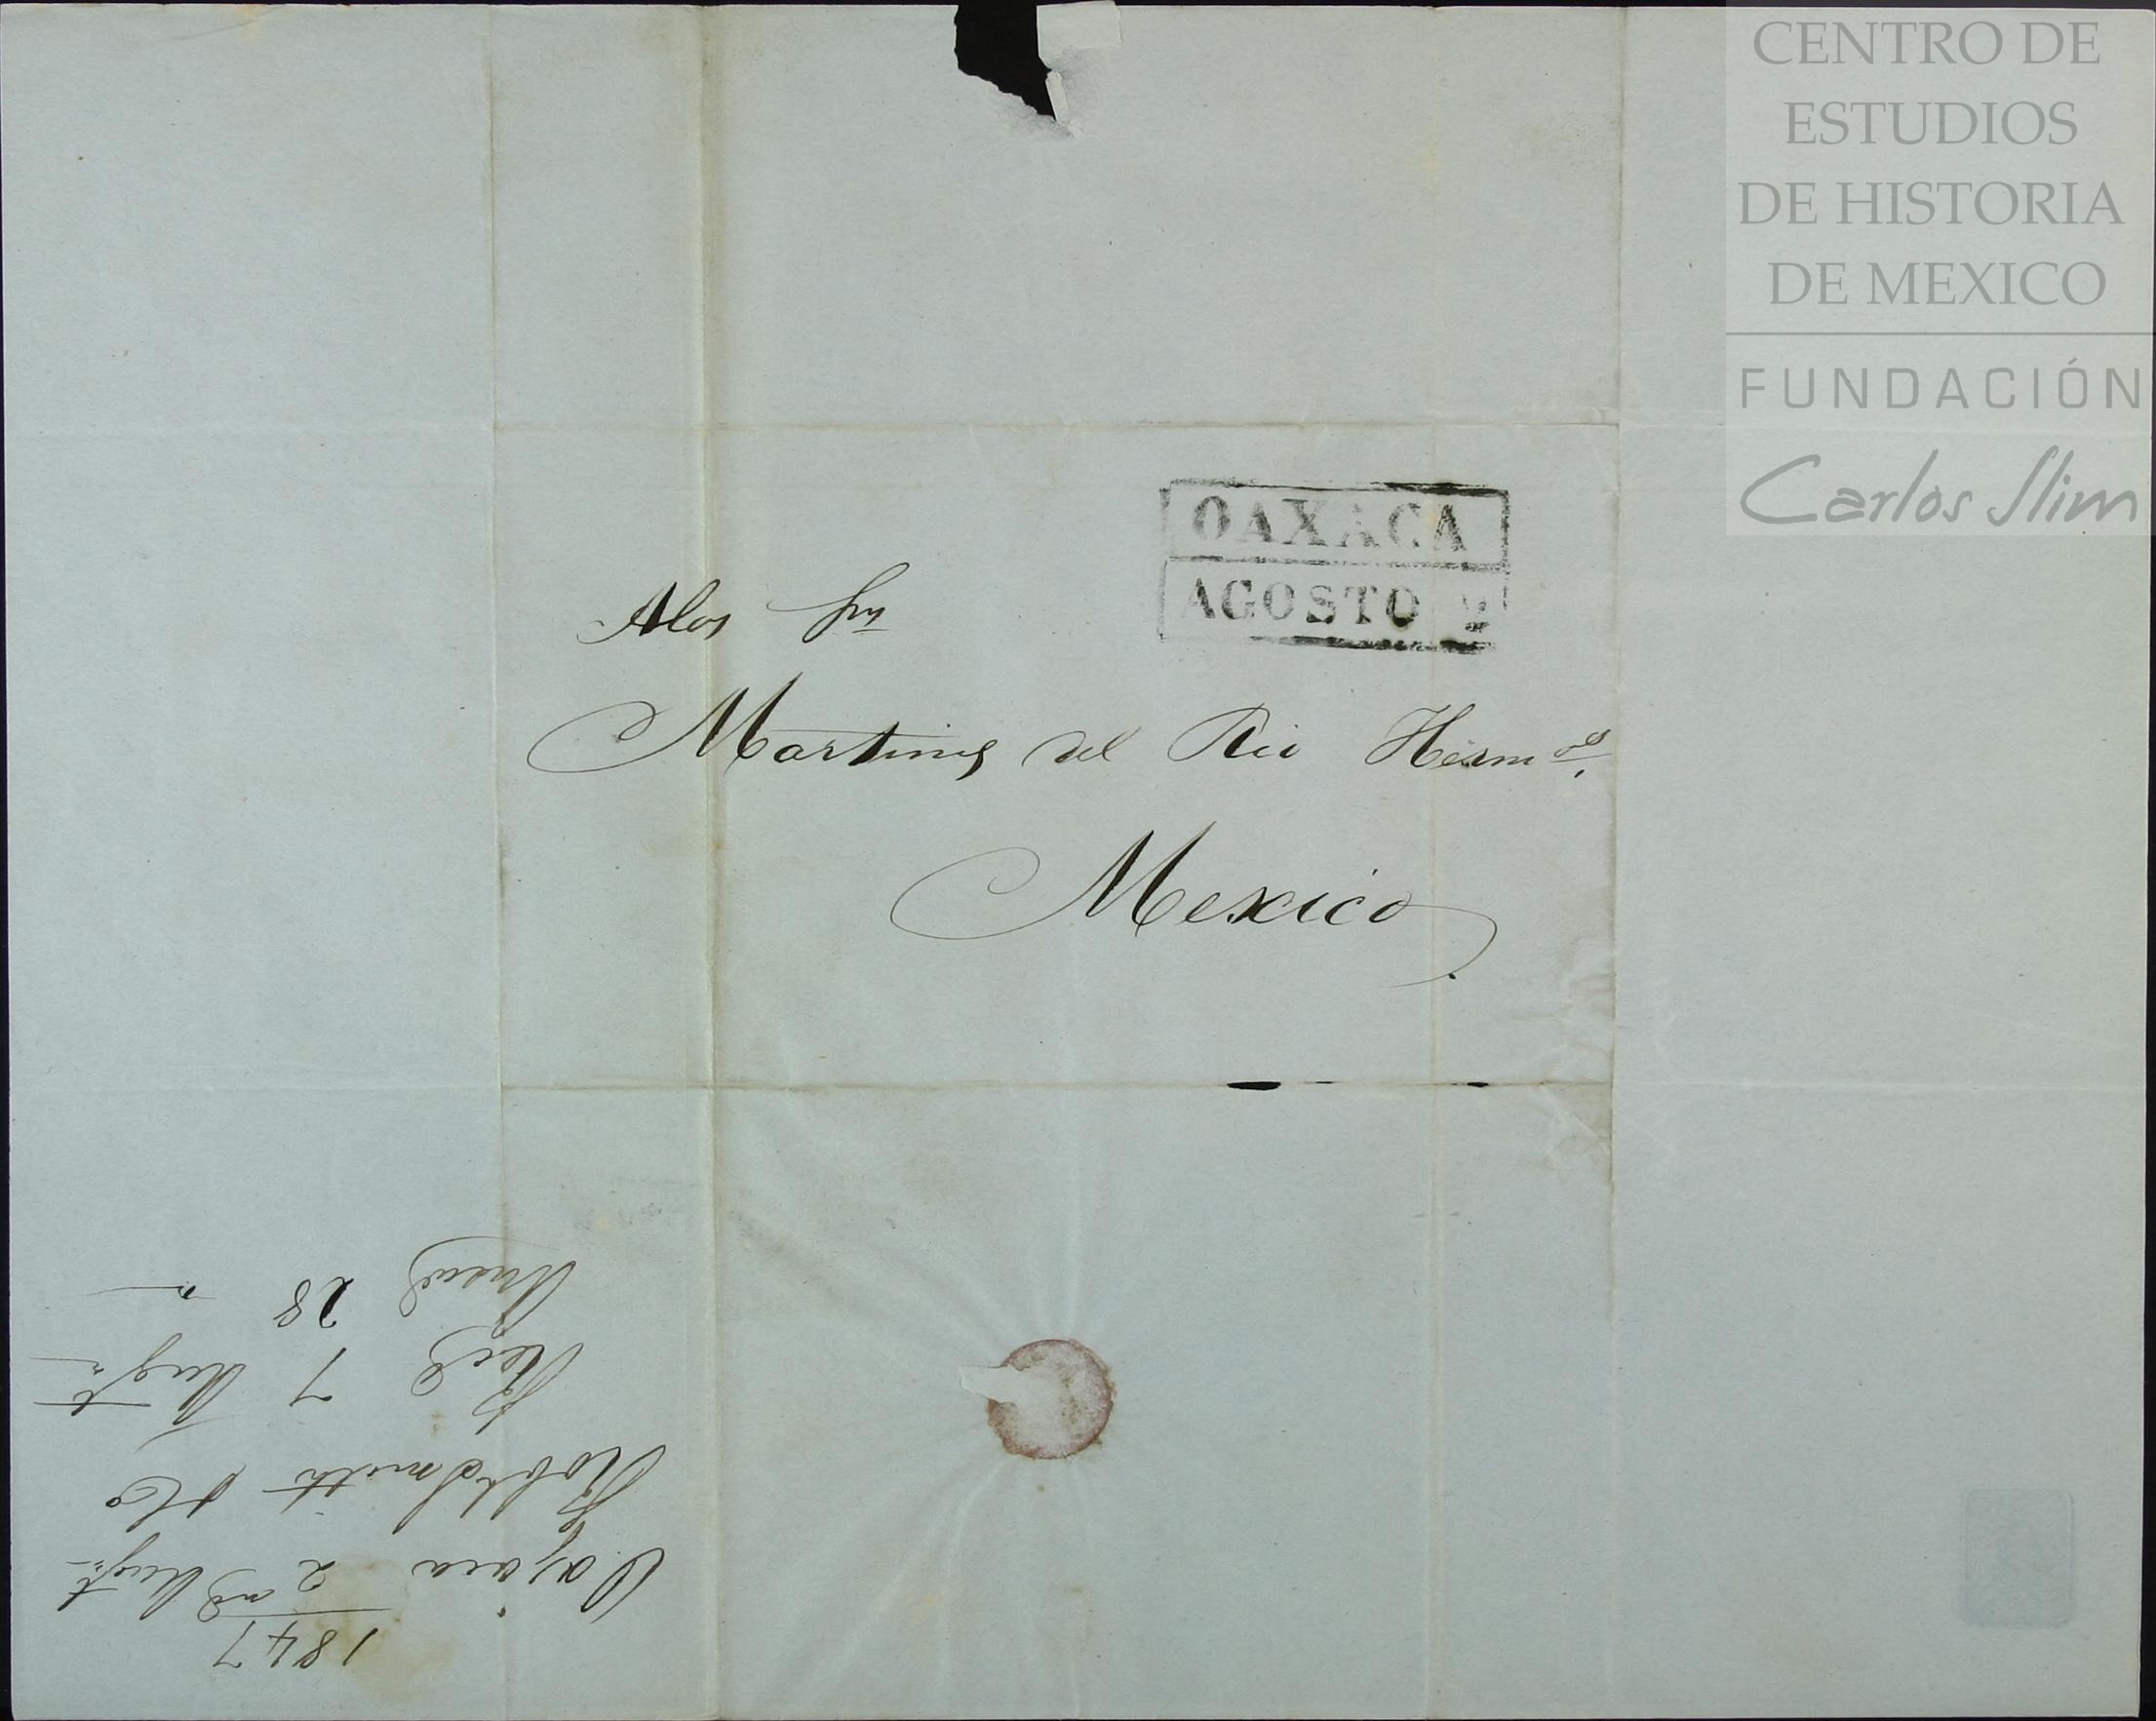 CENTRO DE
ESTUDIOS
DE HISTORIA
DE MEXICO
FUNDACIÓN
Carlos Slim
OAXACA
AGOSTO 2
Alos Srs
Martinez del Rio Hermos.
Mexico
1847
Oajaca 2nd Augt
Robt Smith & Co
Recd 7 Augt
Ansd 28 "